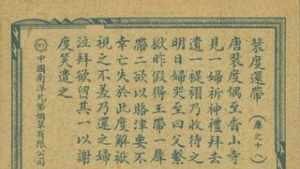 裴度還帶
(廉之十八)
唐裴度偶至香山寺
見一婦祈神禮拜去
遺一乃收待之
明日婦哭至曰父繫
獄昨假得玉帶一犀
帶二欲以賂津要不
幸亡失於此度解
視之不差乃還之婦
泣拜欲留其一以謝
度笑遣之
中國南洋兄弟煙草有限公司